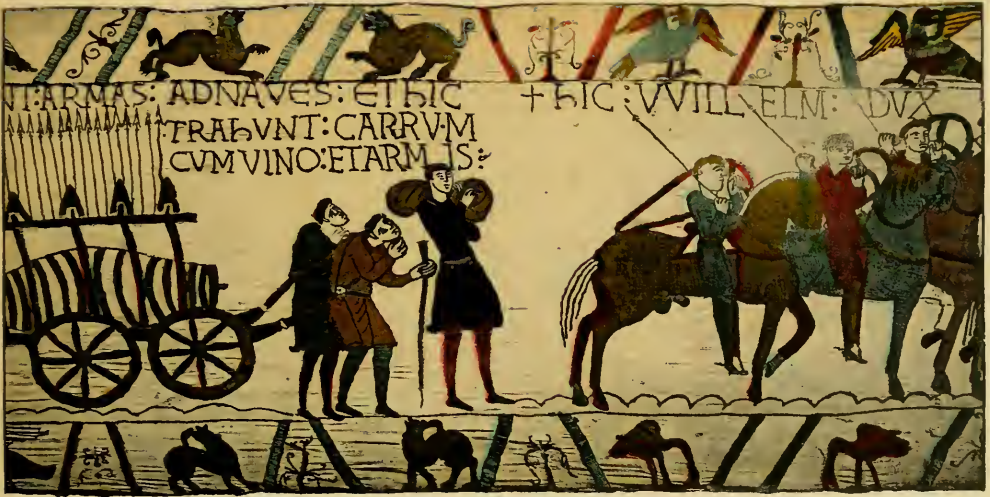 NT: ARMAS: ADNAVES: EThIC
TRAhVNT: CARRVM
CVMVINO: ETARMIS:
+ hIC: VVILLELM: DVX